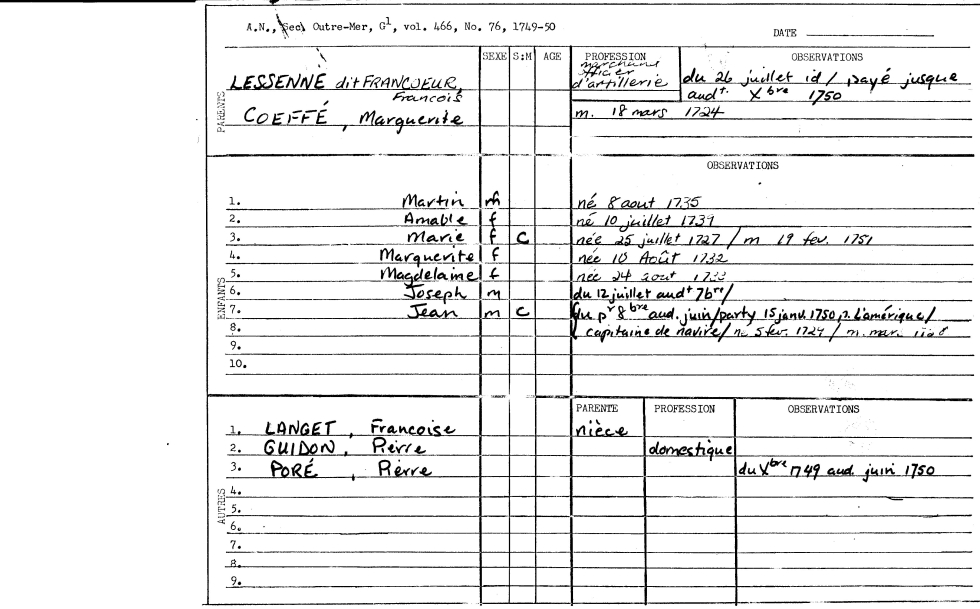 A.N., Sec. Outre-Mer, G1, vol. 466, No. 76, 1749-50
DATE
SEXE S:M AGE PROFESSION OBSERVATIONS
PARENTS
marchand
officier
d'artillerie
LESSENNE dit FRANCOEUR,
François
du 26 juillet id / payé jusque
audt. Xbre 1750
COEFFÉ, Marguerite m. 18 mars 1724
OBSERVATIONS
ENFANTS
1. Martin m né 8 aout 1735
2. Amable f né 10 juillet
3. Marie f C née 25 juillet 1727 / m 19 fev. 1751
4. Marguerite f née 10 Août 1732
5. Magdelaine f née 24 aout
6. Joseph m du 12 juillet audt 7bre/
7. Jean m C du pr 8bre aud. juin/party 15 janv. 1750, p. L'amérique/
8. capitaine de navire/ né 5 fev. / m. mars
9.
10.
PARENTE PROFESSION OBSERVATIONS
AUTRES
1. LANGET, Francoise nièce
2. GUIDON, Pierre domestique
3. PORÉ, Pierre du Xbre 1749 aud. juin 1750
4.
5.
6.
7.
8.
9.